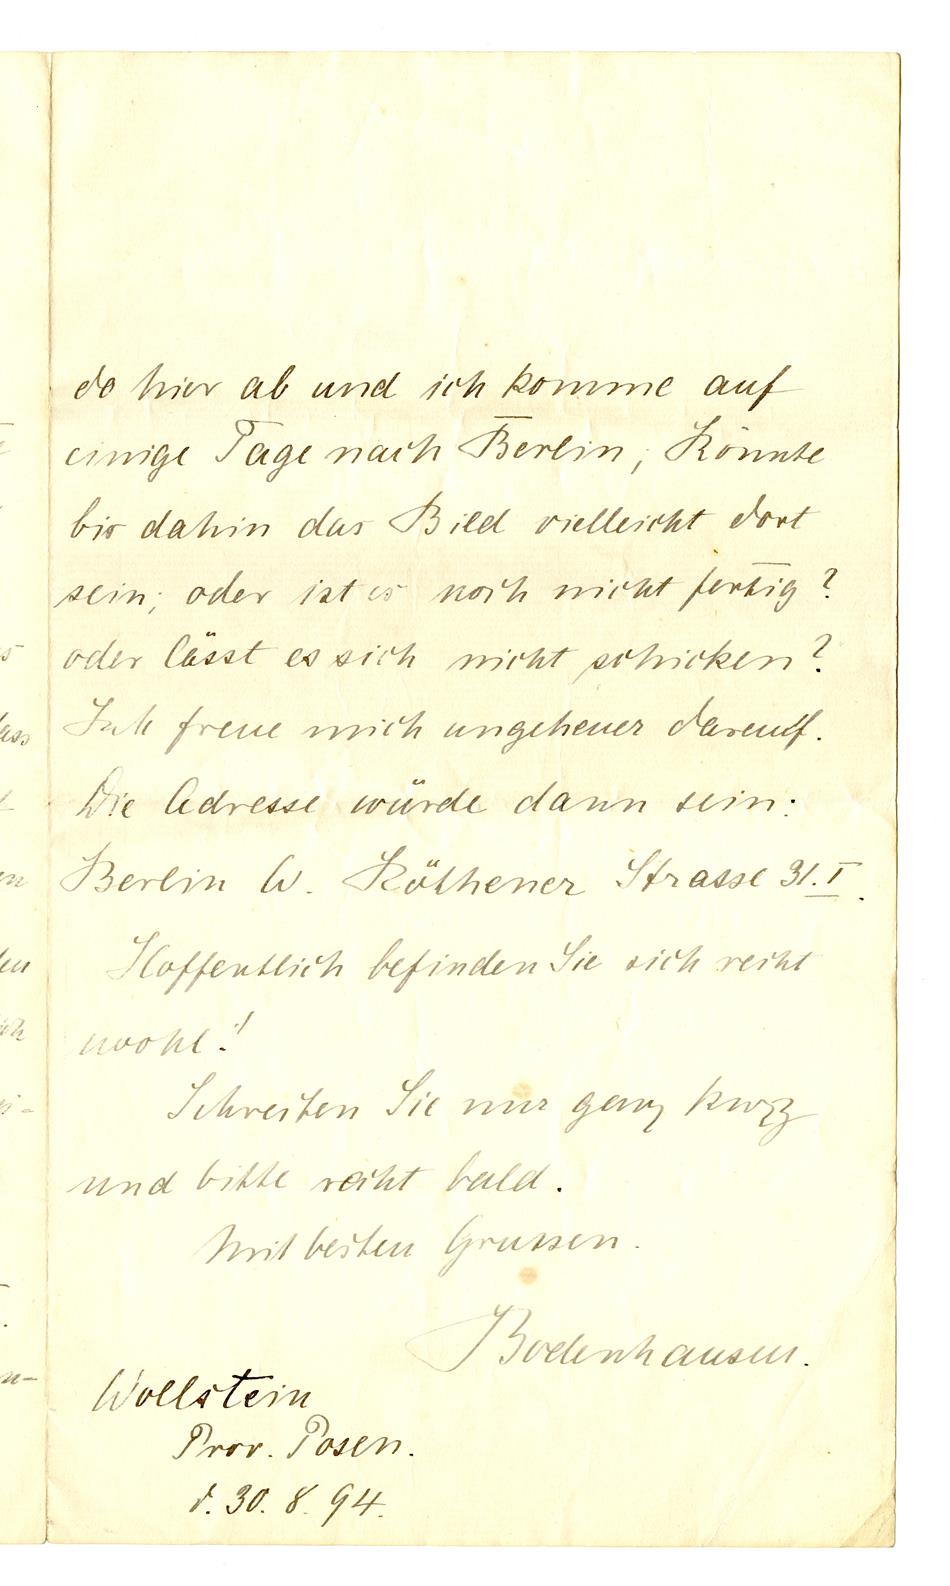 do hier ab und ich komme auf
einige Tage nach Berlin, Könnte
bis dahin das Bild vielleicht dort
sein, oder ist es noch nicht fertig?
oder lässt es sich nicht schicken?
Ich freue mich ungeheuer darauf.
Die Adresse würde dann sein:
Berlin W. Köthener Strasse 31.I.
Hoffentlich befinden Sie sich recht
wohl!
Schreiben Sie nur ganz kurz
und bitte recht bald.
Mit besten Grussen.
Bodenhausen.
Wollstein
Prov. Posen.
d. 30. 8. 94.